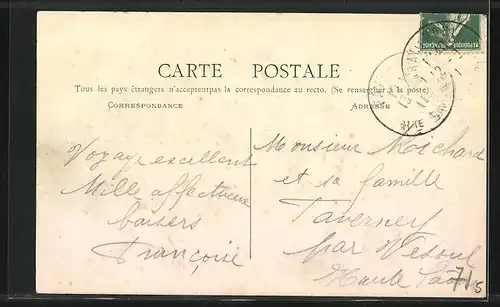 CARTE POSTALE
Tous les pays étrangers n'acceptent pas la correspondance au recto. (Se renseigner à la poste)
CORRESPONDANCE
ADRESSE
Voyage excellent
Mille affectueux
baisers
Françoise
Monsieur Michard
et sa famille
Taverney
par Vesoul
Haute Saône